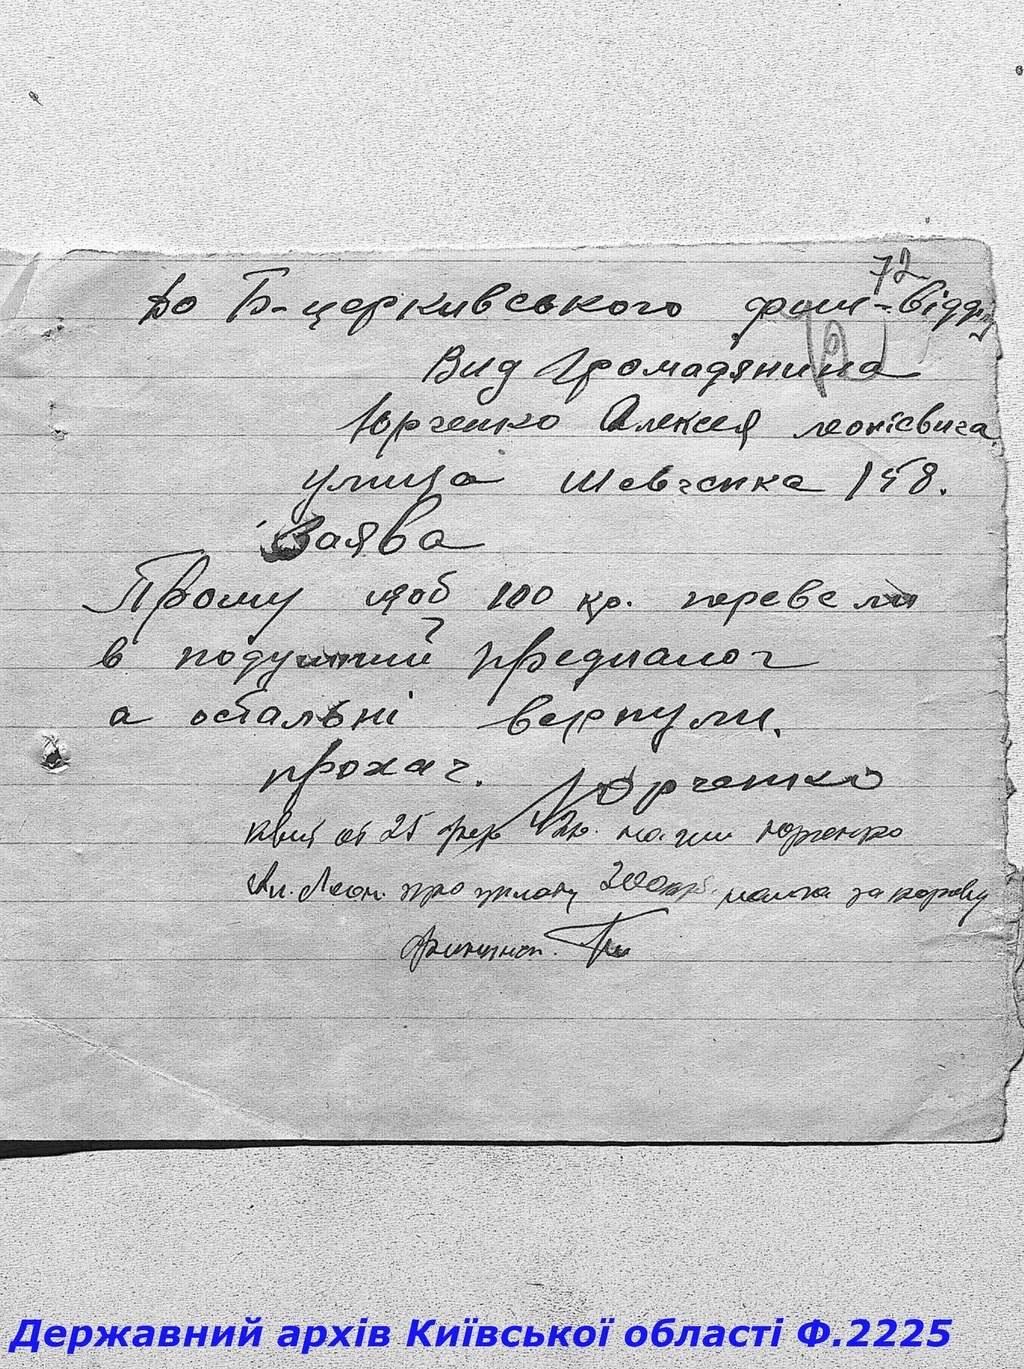 72
До Б-церкивського фин-відділу
Вид Громадянина
Юрченко Алексея леонієвича
улица Шевченка 158.
Заява
Прошу щоб 100 кр. перевели
в подушний предналог
а остальні вернули.
прохач. Юрченко
от 25 на имя Юрченко
Ал. Леон. про уплату 200 крб. налога за корову
Державний архів Київської області Ф.2225